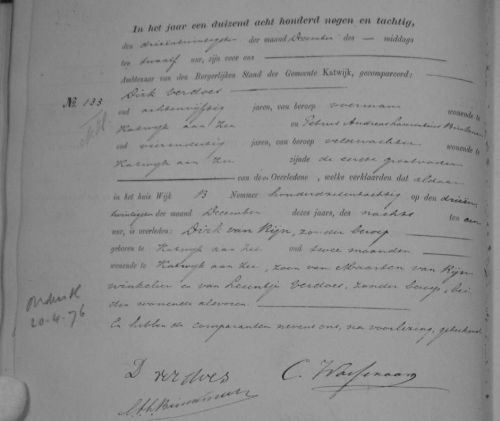 In het jaar een duizend acht honderd negen en tachtig,
den drieentwintigsten der maand December des — middags
ten twaalf ure, zijn voor ons
Ambtenaar van den Burgerlijken Stand der Gemeente Katwijk, gecompareerd:
No. 133 Dirk Verdoes
oud achtenvijftig jaren, van beroep voerman wonende te
Katwijk aan Zee en Petrus Andreas Laurentius
oud vierendertig jaren, van beroep veldwachter wonende te
Katwijk aan Zee zijnde de eerste grootvader
van den Overledene, welke verklaarden dat aldaar
in het huis Wijk B Nommer honderdzesentachtig op den drieën
twintigsten der maand December dezes jaars, des nachts ten een
ure, is overleden: Dirk van Rijn, zonder beroep
geboren te Katwijk aan Zee oud twee maanden
wonende te Katwijk aan Zee, zoon van Maarten van Rijn
winkelier en van Leentje Verdoes, zonder beroep, bei
den wonende alsvoren.
En hebben de comparanten nevens ons, na voorlezing, geteekend.
20-4-76
D verdoes C. Wassenaar